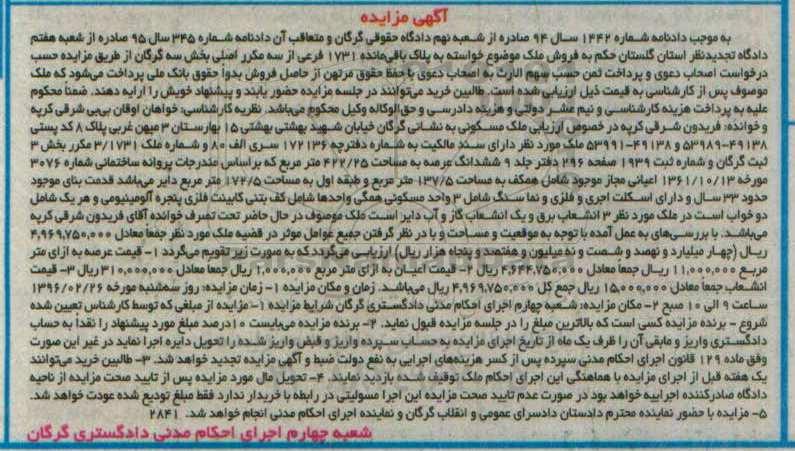 آگهی مزایده
به موجب دادنامه شماره ۱۴۴۲ سال ۹۴ صادره از شعبه نهم دادگاه حقوقی گرگان و متعاقب آن دادنامه شماره ۳۴۵ سال ۹۵ صادره از شعبه هفتم
دادگاه تجدیدنظر استان گلستان حکم به فروش ملک موضوع خواسته به پلاک باقی‌مانده ۱۷۳۱ فرعی از سه مکرر اصلی بخش سه گرگان از طریق مزایده حسب
درخواست اصحاب دعوی و پرداخت ثمن حسب سهم الارث به اصحاب دعوی با حفظ حقوق مرتهن از حاصل فروش بدوا حقوق بانک ملی پرداخت می‌شود که ملک
موصوف پس از کارشناسی به قیمت ذیل ارزیابی شده است. طالبین خرید می‌توانند در جلسه مزایده حضور یابند و پیشنهاد خویش را ارایه دهند. ضمنا محکوم
علیه به پرداخت هزینه کارشناسی و نیم عشر دولتی و هزینه دادرسی و حق‌الوکاله وکیل محکوم می‌باشد. نظریه کارشناسی: خواهان اوقان بی‌بی شرقی کریه
و خوانده: فریدون شرقی کریه در خصوص ارزیابی ملک مسکونی به نشانی گرگان خیابان شهید بهشتی بهشتی ۱۵ بهارستان ۳ میهن غربی پلاک ۸ کد پستی
۴۹۱۳۸-۵۳۹۸۹ و ۴۹۱۳۸-۵۳۹۹۱ ملک مورد نظر دارای سند مالکیت به شماره دفترچه ۱۷۲۱۳۶ سری الف ۸۰ و شماره ملک ۳/۱۷۳۱ مکرر بخش ۳
ثبت گرگان و شماره ثبت ۱۹۳۹ صفحه ۲۹۶ دفتر جلد ۹ ششدانگ عرصه به مساحت ۴۲۲/۲۵ متر مربع که براساس مندرجات پروانه ساختمانی شماره ۳۰۷۶
مورخه ۱۳۶۱/۱۰/۱۳ اعیانی مجاز موجود شامل همکف به مساحت ۱۳۷/۵ متر مربع و طبقه اول به مساحت ۱۷۲/۵ متر مربع دایر می‌باشد قدمت بنای موجود
حدود ۳۳ سال و دارای اسکلت اجری و فلزی و نما سنگ شامل ۳ واحد مسکونی همگی واحدها شامل کف بتنی کابینت فلزی پنجره آلومینیومی و هر یک شامل
دو خواب است در ملک مورد نظر ۳ انشعاب برق و یک انشعاب گاز و آب دایر است ملک موصوف در حال حاضر تحت تصرف خوانده آقای فریدون شرقی کریه
می‌باشد. با بررسی‌های به عمل آمده با توجه به موقعیت و مساحت و با در نظر گرفتن جمیع عوامل موثر در قضیه ملک مورد نظر جمعا معادل ۴,۹۶۹,۷۵۰,۰۰۰
ریال (چهار میلیارد و نهصد و شصت و نه میلیون و هفتصد و پنجاه هزار ریال) ارزیابی می‌گردد که به صورت زیر تقویم می‌گردد ۱- قیمت عرصه به ازای متر
مربع ۱۱,۰۰۰,۰۰۰ ریال جمعا معادل ۴,۶۴۴,۷۵۰,۰۰۰ ریال ۲- قیمت اعیان به ازای متر مربع ۱,۰۰۰,۰۰۰ ریال جمعا معادل ۳۱۰,۰۰۰,۰۰۰ ریال ۳- قیمت
انشعاب جمعا معادل ۱۵,۰۰۰,۰۰۰ ریال جمع کل ۴,۹۶۹,۷۵۰,۰۰۰ ریال می‌باشد. زمان و مکان مزایده ۱- زمان مزایده: روز سه‌شنبه مورخه ۱۳۹۶/۰۲/۲۶
ساعت ۹ الی ۱۰ صبح ۲- مکان مزایده: شعبه چهارم اجرای احکام مدنی دادگستری گرگان شرایط مزایده ۱- مزایده از مبلغی که توسط کارشناس تعیین شده
شروع - برنده مزایده کسی است که بالاترین مبلغ را در جلسه مزایده قبول نماید. ۲- برنده مزایده می‌بایست ۱۰درصد مبلغ مورد پیشنهاد را نقدا به حساب
دادگستری واریز و مابقی آن را ظرف یک ماه از تاریخ اجرای مزایده به حساب سپرده واریز و قبض واریز شده را تحویل دایره اجرا نماید در غیر این صورت
وفق ماده ۱۲۹ قانون اجرای احکام مدنی سپرده پس از کسر هزینه‌های اجرایی به نفع دولت ضبط و آگهی مزایده تجدید خواهد شد. ۳- طالبین خرید می‌توانند
یک هفته قبل از اجرای مزایده با هماهنگی این اجرای احکام ملک توقیف شده بازدید نمایند. ۴- تحویل مال مورد مزایده پس از تایید صحت مزایده از ناحیه
دادگاه صادرکننده اجراییه خواهد بود در صورت عدم تایید صحت مزایده این اجرا مسولیتی در رابطه با خریدار ندارد فقط مبلغ تودیع شده عودت خواهد شد.
۵- مزایده با حضور نماینده محترم دادستان دادسرای عمومی و انقلاب گرگان و نماینده اجرای احکام مدنی انجام خواهد شد. ۲۸۴۱
شعبه چهارم اجرای احکام مدنی دادگستری گرگان